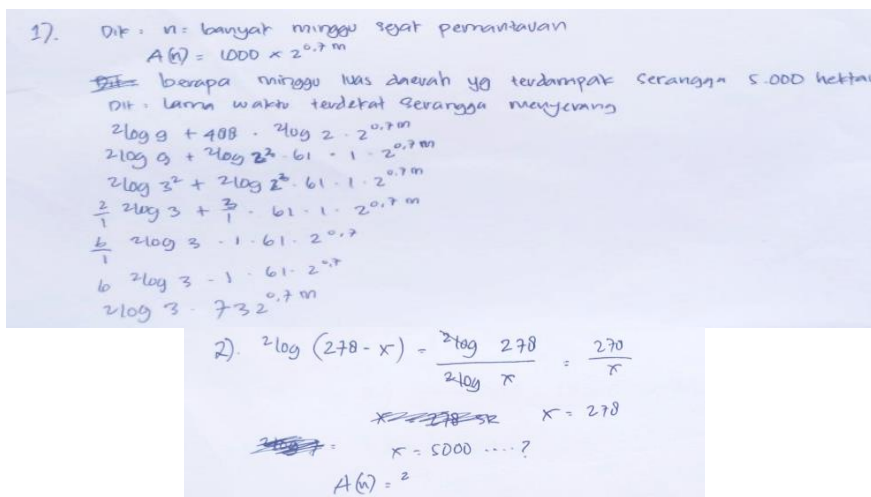 1). Dik : n = banyak minggu sejak pemantauan
A(n) = 1000 × 2^0,7 n
berapa minggu luas daerah yg terdampak serangga 5.000 hektar
Dit : Lama waktu terdekat serangga menyerang
²log 9 + 488 · ²log 2 · 2^0,7 n
²log 9 + ²log 2³ · 61 · 1 · 2^0,7 n
²log 3² + ²log 2³ · 61 · 1 · 2^0,7 n
2/1 ²log 3 + 3/1 · 61 · 1 · 2^0,7 n
6/1 ²log 3 · 1 · 61 · 2^0,7
6 ²log 3 - 1 · 61 · 2^0,7
²log 3 · 732^0,7 n
2). ²log (278 - x) = ²log 278 / ²log x = 270 / x
x = 278
x = 5000 ....?
A(n) = ²